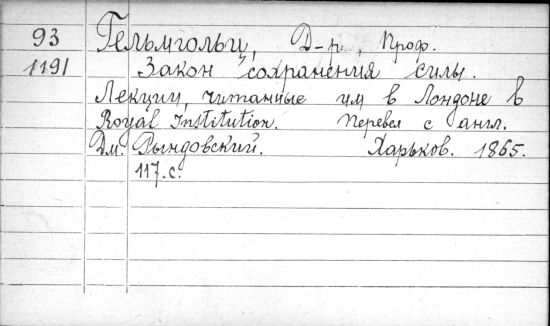 93 Гельмгольц, Д-р, Проф.
1191 Закон сохранения силы.
Лекции, читанные им в Лондоне в
Royal Institution. Перевел с англ.
Дм. Рындовский. Харьков. 1865.
117. с.